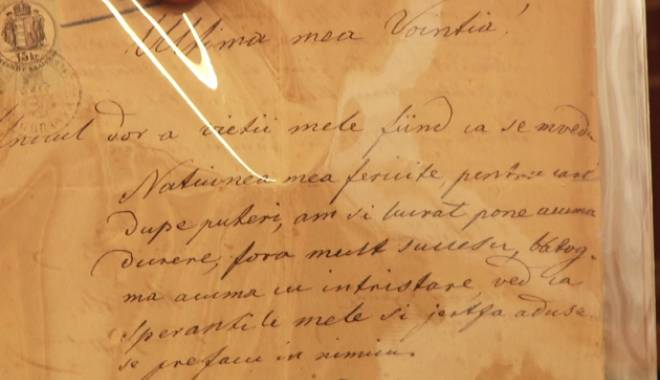 15 kr
Ultima mea Vointia!
Unicul dor a vietii mele fiind ca se mi vedu
Natiunea mea fericite, pentru care
dupe puteri, am si lucrat pone acuma
durere, fora mult succesu,
ma acuma cu intristare ved ca
sperantile mele si jertfa adusa
se prefacu in nimicu.